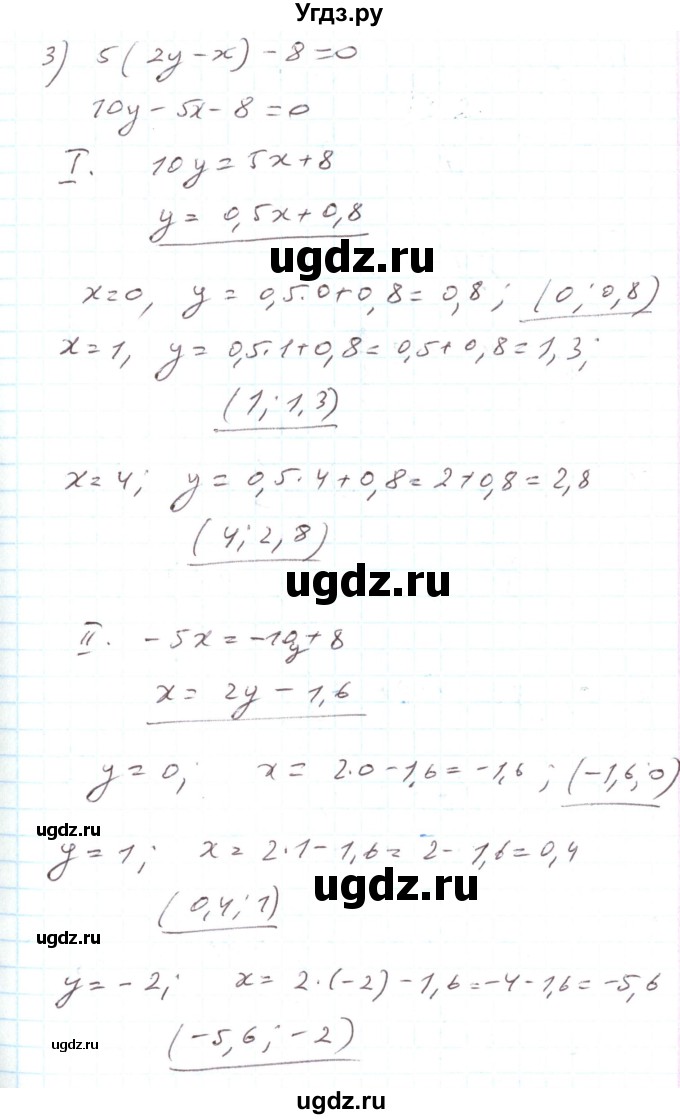 Угдз.ру
3) 5(2y-x)-8=0
10y-5x-8=0
I. 10y=5x+8
y=0,5x+0,8
ugdz.ru
x=0, y=0,5·0+0,8=0,8; (0;0,8)
x=1, y=0,5·1+0,8=0,5+0,8=1,3;
(1;1,3)
x=4; y=0,5·4+0,8=2+0,8=2,8
(4;2,8)
ugdz.ru
II. -5x=-10y+8
x=2y-1,6
y=0; x=2·0-1,6=-1,6; (-1,6;0)
ugdz.ru
y=1; x=2·1-1,6=2-1,6=0,4
ugdz.ru
(0,4;1)
ugdz.ru
y=-2; x=2·(-2)-1,6=-4-1,6=-5,6
(-5,6;-2)
ugdz.ru
ugdz.ru